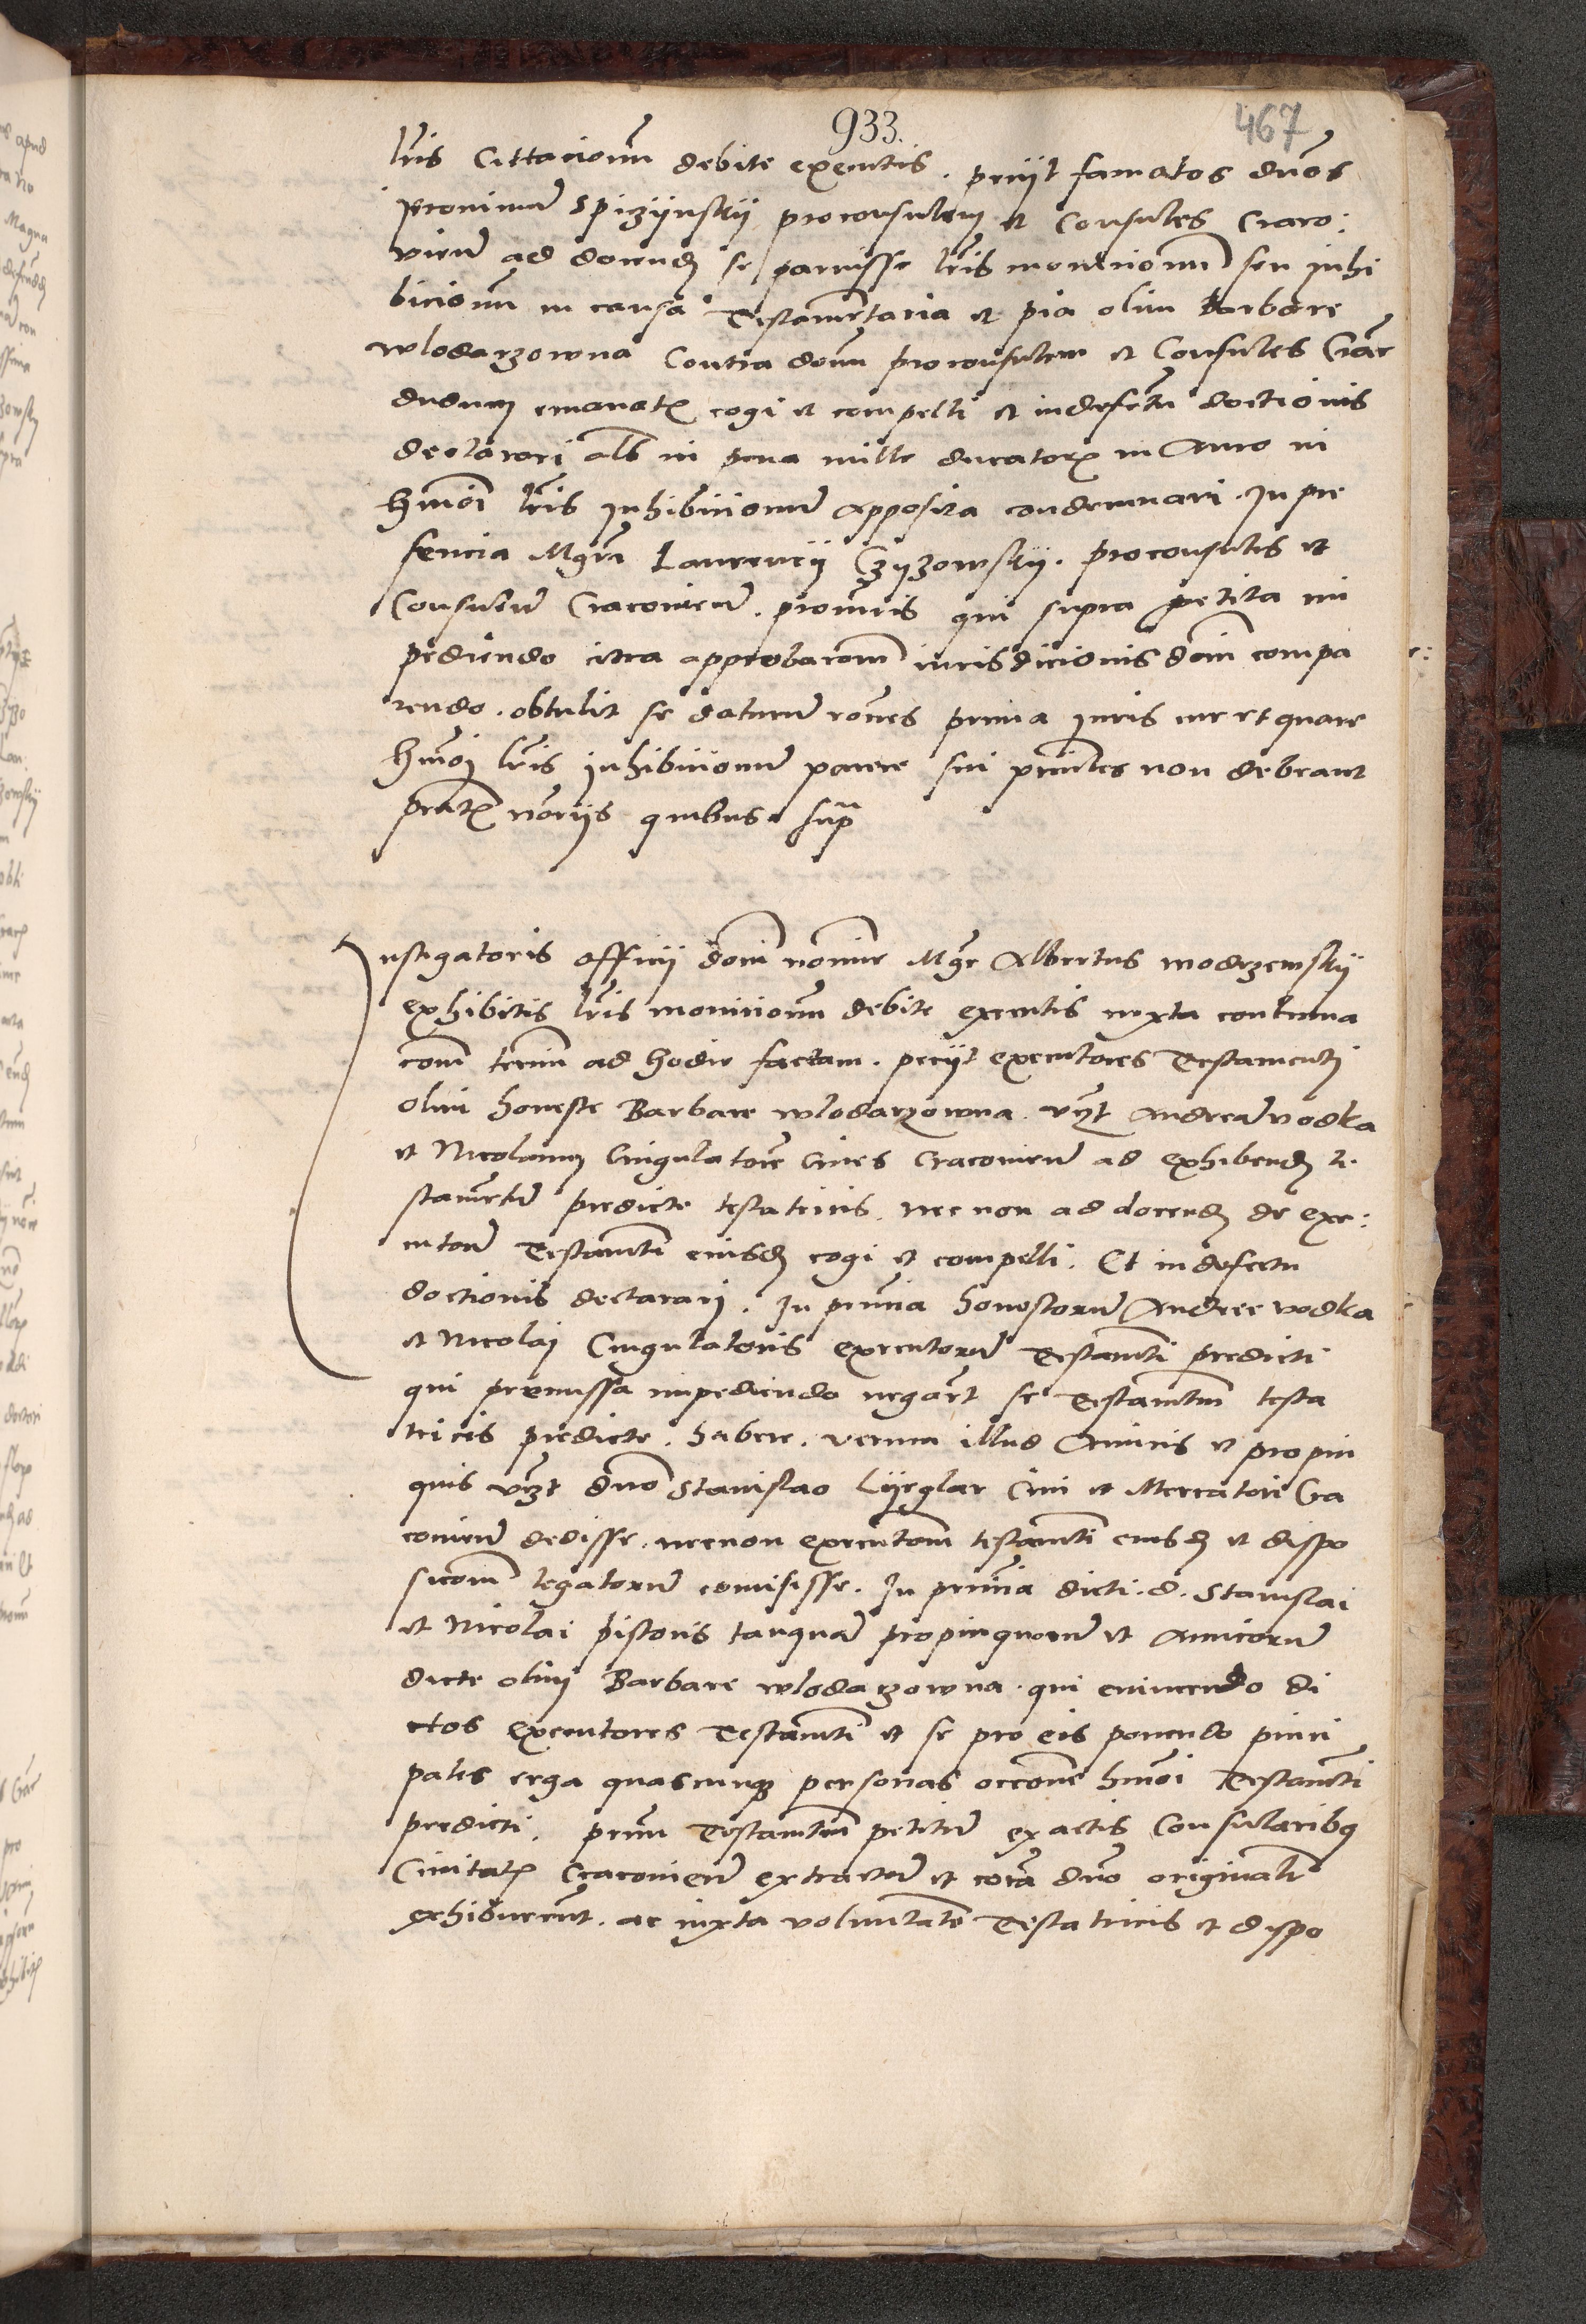 933.
467
lris Cittacionum debite executis. petiit famatos dnos
Jeronimu Spiczijnskij proconsulem et Consules Craco:
vien ad docend se paruisse lris monicionum seu inhi
bicionum in causa Testamentaria et pia olim Barbare
wlodarzowna Contra domi proconsulem et Consules Crac
dudum emanat cogi et compelli et in defectu doctionis
declarari als in pena mille ducator in Auro in
hmoi lris Inhibicionum apposita condemnari. In pre
sencia Mgri Laurencij Czyzowskij. proconsulis et
Consulum Cracovien. procuris qui supra petita im
pediendo citra approbacom iurisdicionis dom compa
rendo. obtulit se daturu rones prima Juris
hmoi lris Inhibicionum parere sui principales non debeant
prntt notariis quibus sup
Instigatoris officij dom nomine Mgr Albertus modrzewskij
exhibitis lris monicionum debite executis iuxta continua
com termi ad hodie factam. petiit executores Testamenti
olim honeste Barbare wlodarzowna vczt Andrea vodka
et Nicolaum Cingulatore Cives Cracovien ad exhibend te
stamentu predicte testatricis. nec non ad docend de exe:
cutone Testamti eiusd cogi et compelli. Et in defectu
doctionis declarari. In prnia honestoru Andree vodka
et Nicolai Cingulatoris executoru Testamti predicti
qui premissa impediendo negarut se Testamtum testa
tricis predicte. habere. verum illud Amicis et propin
quis vczt dno Stanislao Lijeglar Civi et Mercatori Cra
covien dedisse. necnon executom testamti eiusd et dispo
sicom legatoru comisisse. In prnia dicti. d. Stanislai
et Nicolai pistoris tanqua propinquoru et Amicoru
dicte olim Barbare wlodarzowna. qui evincendo di
ctos executores Testamti et se pro eis ponendo princi
pales erga quascunq personas occone hmoi Testamti
predicti. prnm Testamtum petitu ex actis Consularibq
Civitat Cracovien extractu et cora dno originalr
exhibuerunt. ac iuxta voluntate Testatricis et dispo